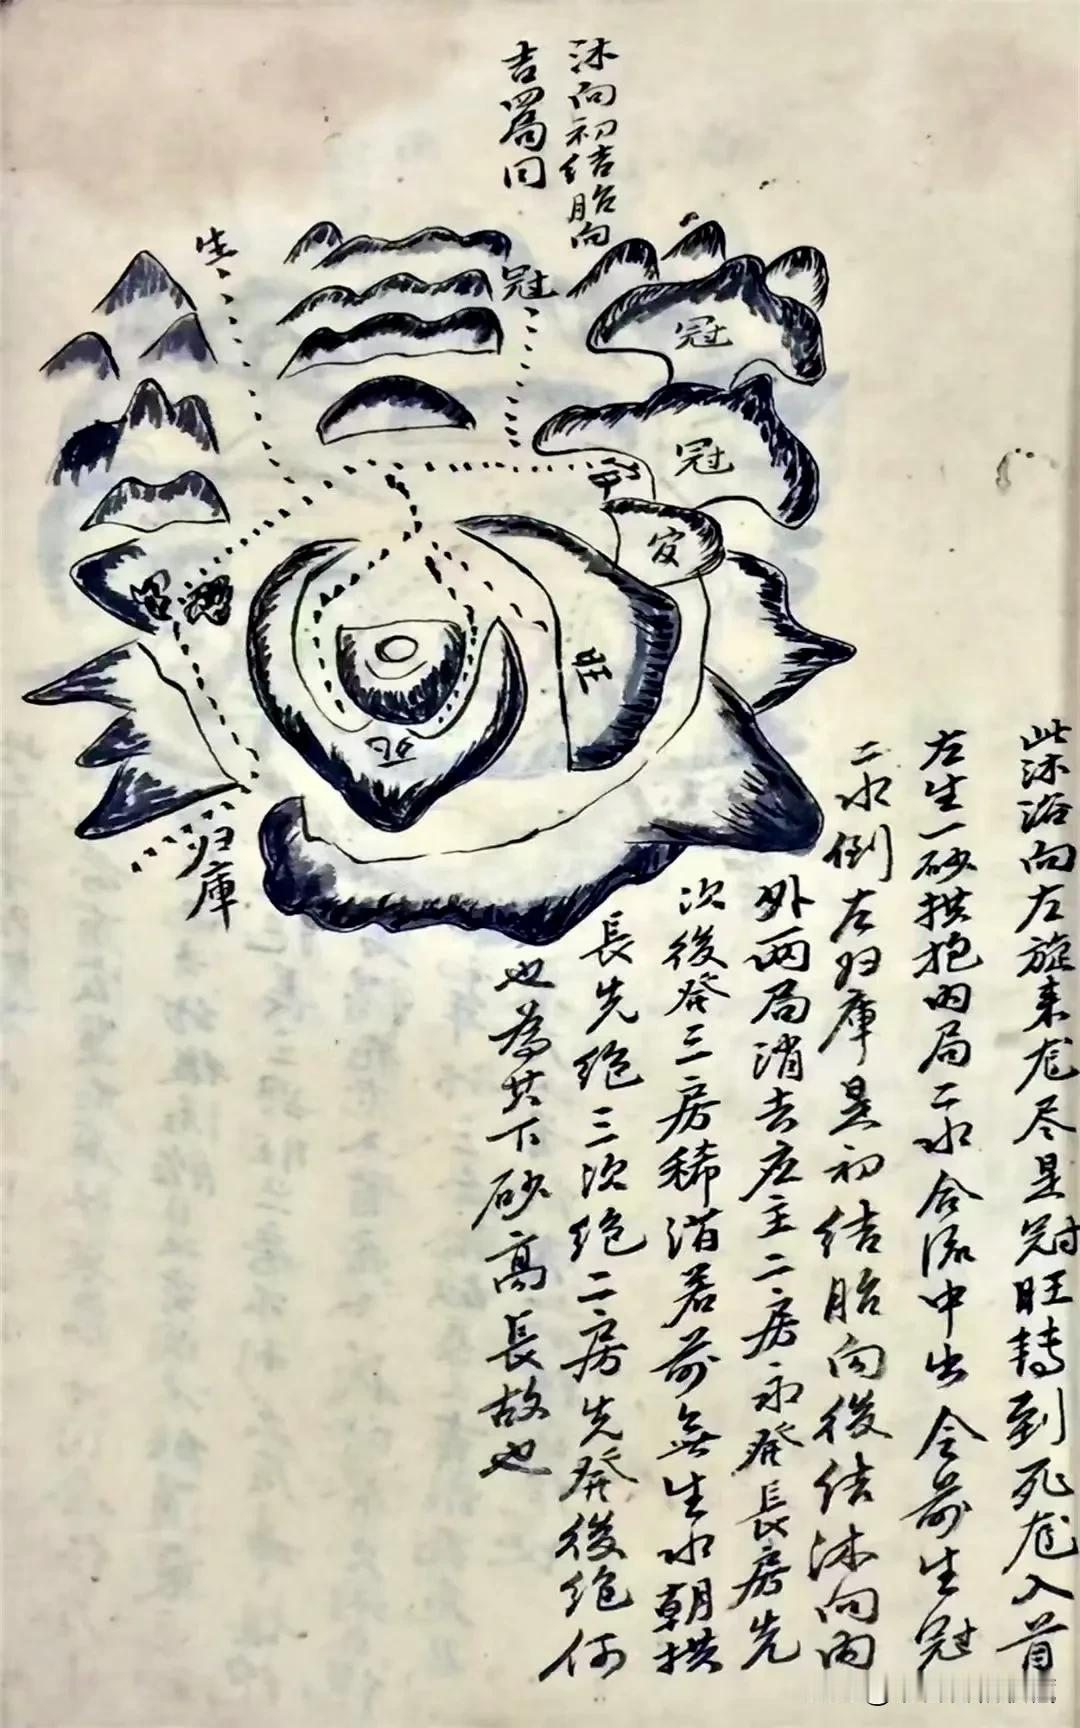 沐向初结胎向
吉四局同
生
冠
冠
冠
旺
死
归庫
此沐浴向左旋来龙尽是冠旺轉到死龙入首
左生一砂拱抱内局二水合流中出令前生冠
二水倒左归庫是初结胎向後结沐向内
外两局消去应主二房永發長房先
次後發三房稀消若前無生水朝拱
長先绝三次绝二房先發後绝何
也為其下砂高長故也